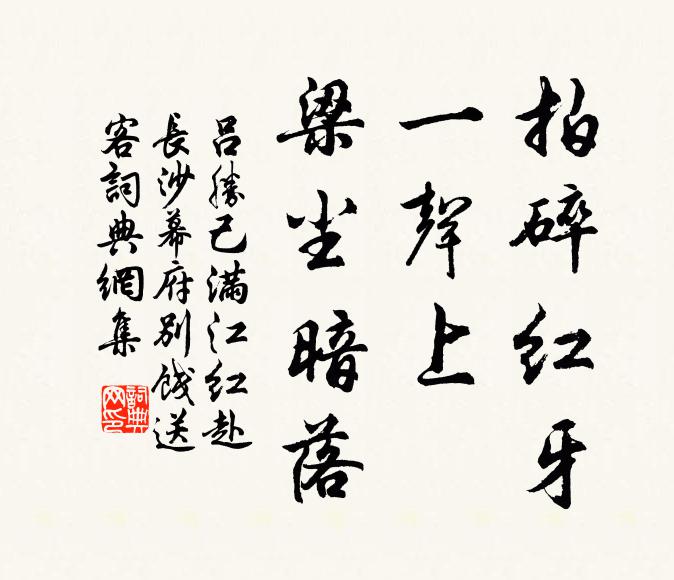 拍碎红牙
一聲上
梁尘暗落
吕勝己满江红赴
長沙幕府别餞送
客詞典網集
詞典网印